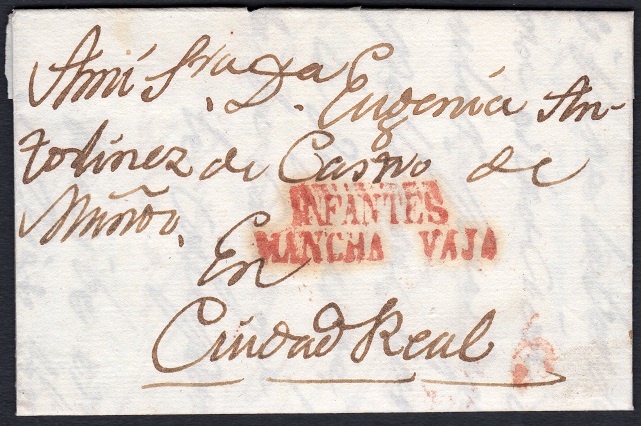 Ami Sra Da
D. Eugenia An-
tolinez de Castro de
Muñoz.
INFANTES
MANCHA VAJA
En
Ciudad Real